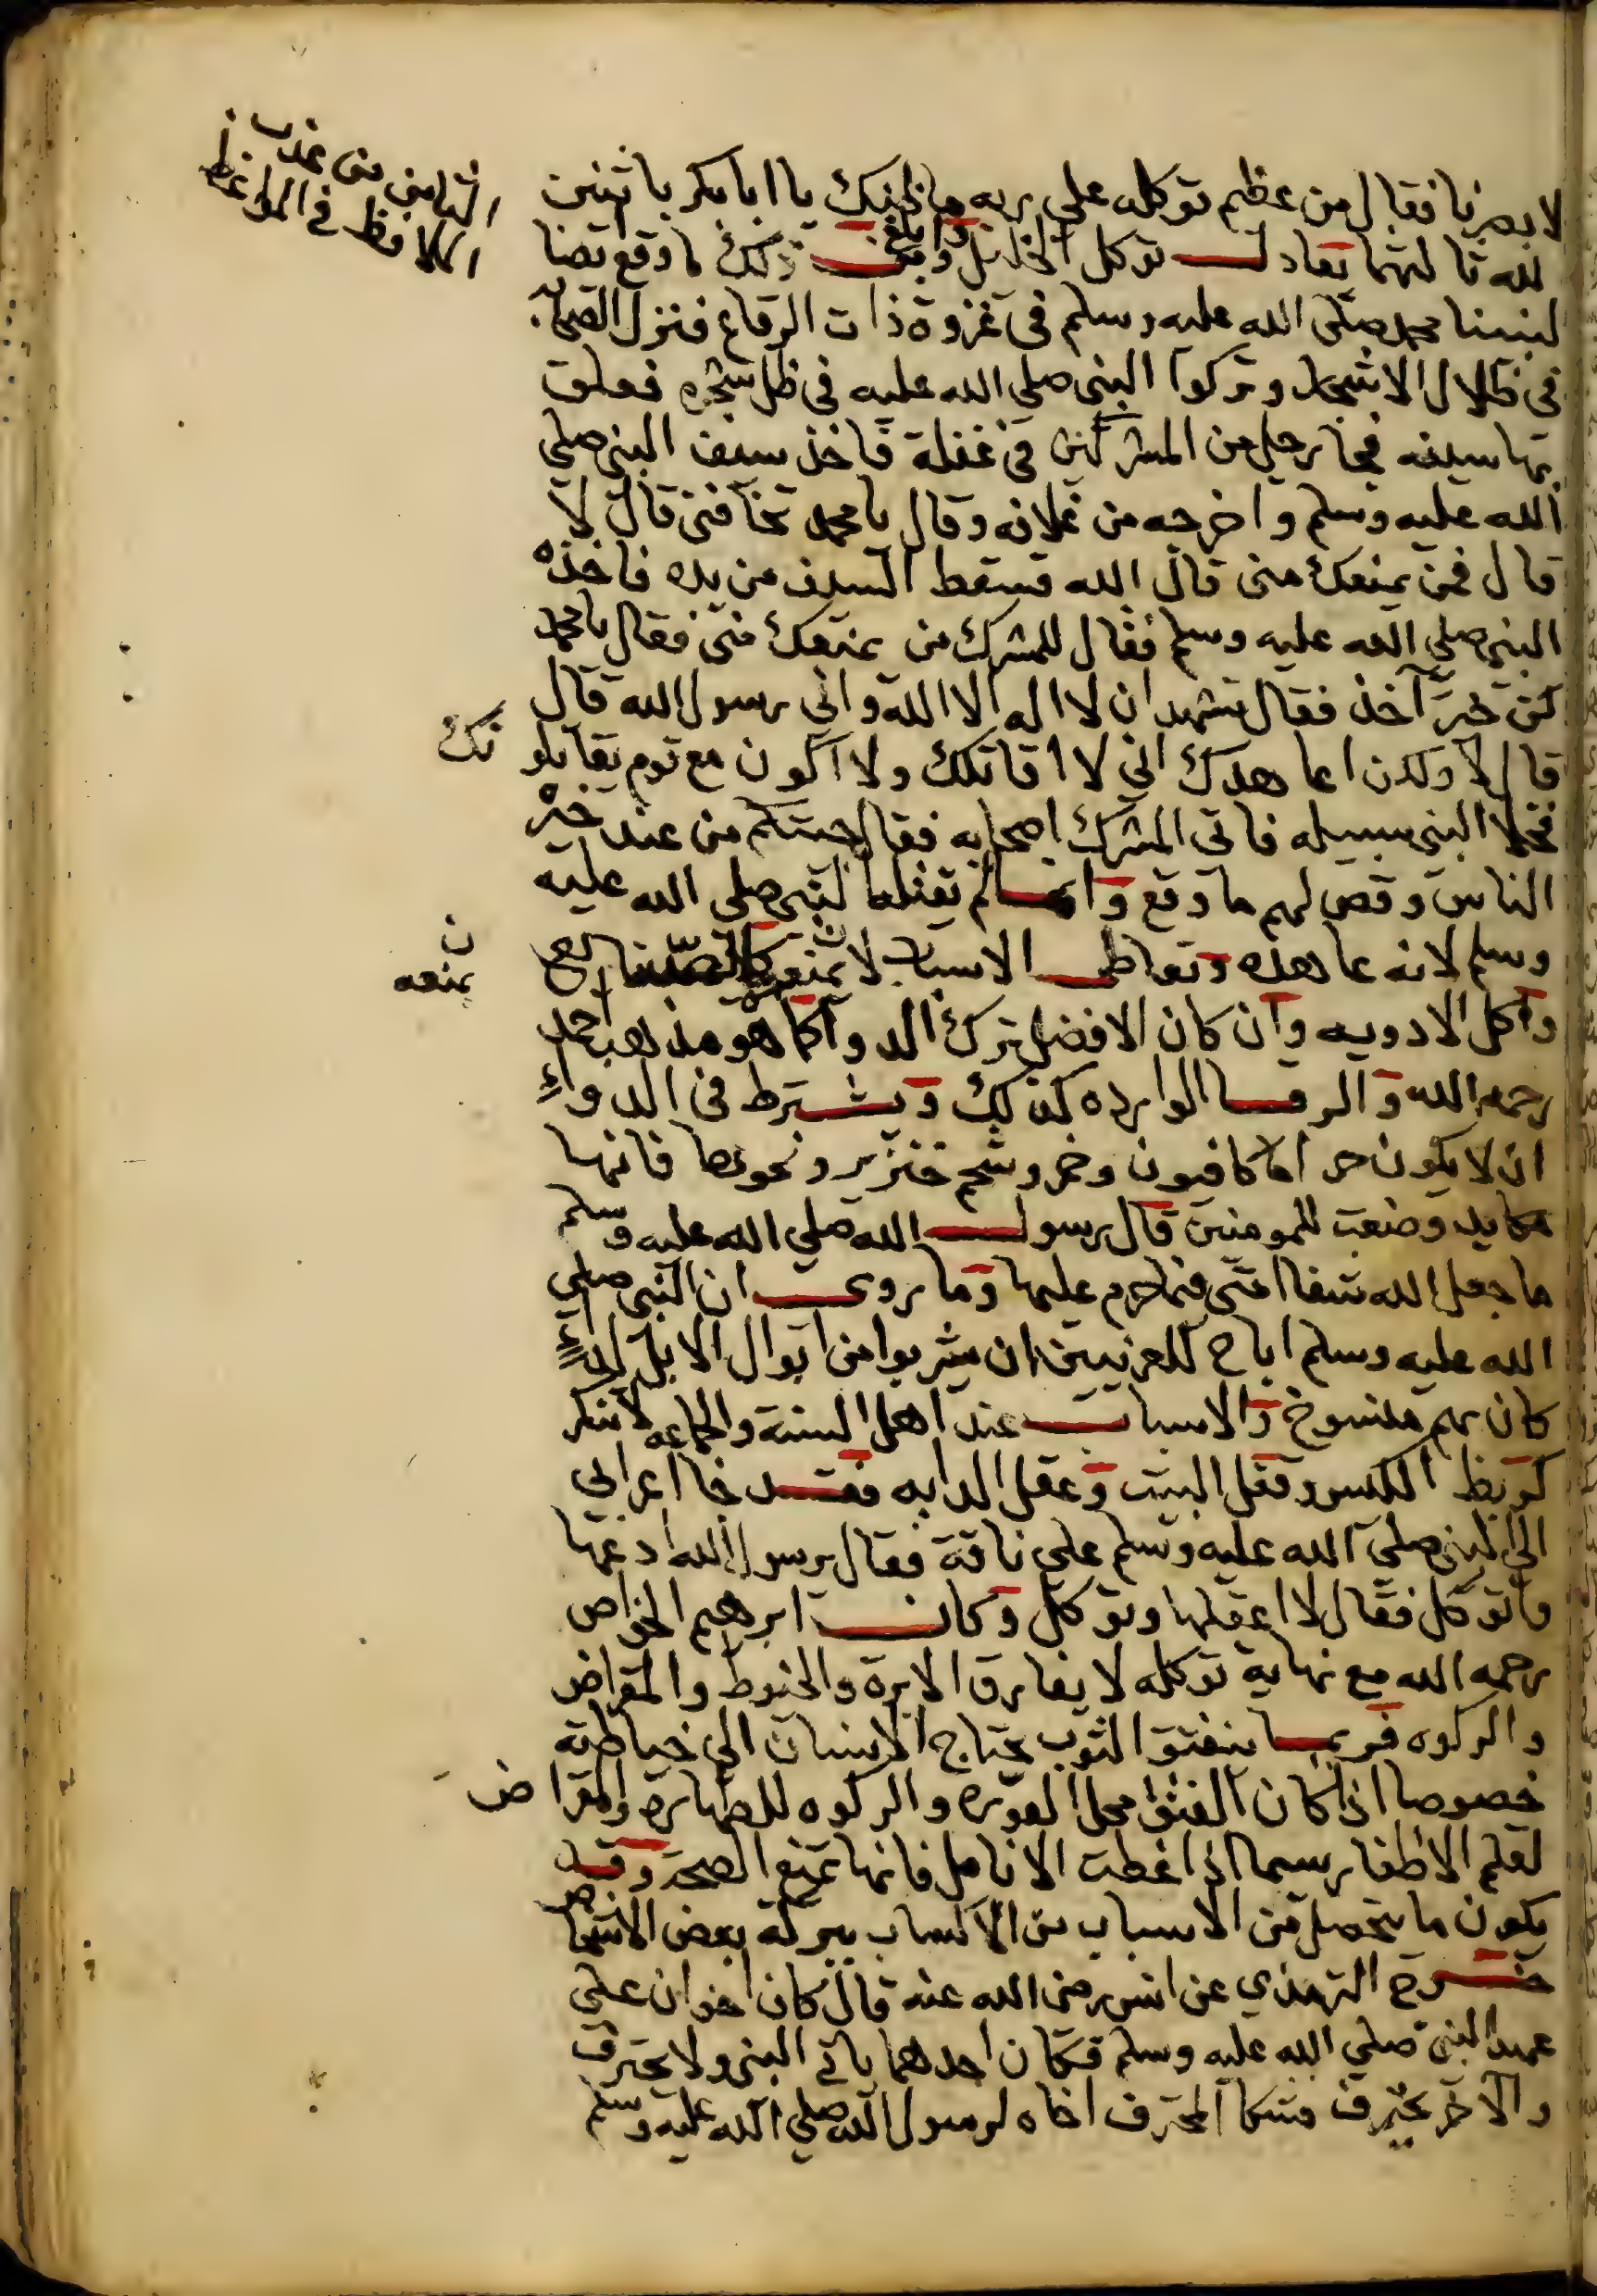 الثامن من عذب
الالافظ في المواعظ
لابصرنا فقال من عظيم توكله على ربه ما ظنك يا ابا بكر باثنين
الله ثالثهما يعادل توكل الخليل وابلغ من ذلك ما وقع ايضا
لنبينا محمد صلى الله عليه وسلم في غزوة ذات الرقاع فنزل الصحابه
في ظلال الاشجار وتركوا النبي صلي الله عليه في ظل شجره فعلق
بها سيفه فجا رجل من المشركين في غفلة فاخذ سيف النبي صلي
الله عليه وسلم واخرجه من غلافه وقال يا محمد تخافني قال لا
قال فمن يمنعك مني قال الله فسقط السيف من يده فاخذه
النبي صلي الله عليه وسلم فقال للمشرك من يمنعك مني فقال يا محمد
كن خير آخذ فقال تشهد ان لا اله الا الله واني رسول الله قال
قال لا ولكن اعاهدك اني لا اقاتلك ولا اكون مع قوم يقاتلو نك
فخلا النبي سبيله فاتي المشرك اصحابه فقال جيتكم من عند خير
الناس وقص لهم ما وقع وانما لم يقتله النبي صلي الله عليه
وسلم لانه عاهده وتعاطي الاسباب لا يمنع
ن
يمنعه
واكل الادويه وان كان الافضل ترك الدوا كما هو مذهب احمد
رحمه الله والرقا الوارده كذلك ويشترط في الدواءِ
ان لا يكون حراما كافيون وخمر وشحم خنزير ونحوها فانها
مكايد وضعت للمومنين قال رسول الله صلي الله عليه وسلم
ما جعل الله شفا امتي فيما حرم عليها وما روي ان النبي صلي
الله عليه وسلم اباح للعرنيين ان يشربوا من ابوال الابل لداءٍ
كان بهم منسوخ والاسباب عند اهل السنة والجماعه لا تنكر
كربط الكيس وقفل البيت وعقل الدابه فقد جا اعرابي
الي النبي صلي الله عليه وسلم علي ناقة فقال يرسول الله ادعها
واتوكل فقال لا اعقلها وتوكل وكان ابرهيم الخواص
رحمه الله مع نهاية توكله لا يفارق الابرة والخيوط والمقراض
والركوه فربما ينفتق الثوب يحتاج الانسان الي خياطته
خصوصا اذا كان الفتق محل العوره والركوه للطهارة والمقرا ض
لقلم الاظفار سيما اذا غطت الانامل فانها تمنع الصحة وقد
يكون ما يتحصل من الاسباب من الاكساب ببركة بعض الاشخاص
خرج الترمذي عن انس رضي الله عنه قال كان اخوان علي
عهد النبي صلي الله عليه وسلم فكان احدهما ياتي النبي ولا يحترف
والاخر يحترف فشكا المحترف اخاه لرسول الله صلي الله عليه وسلم